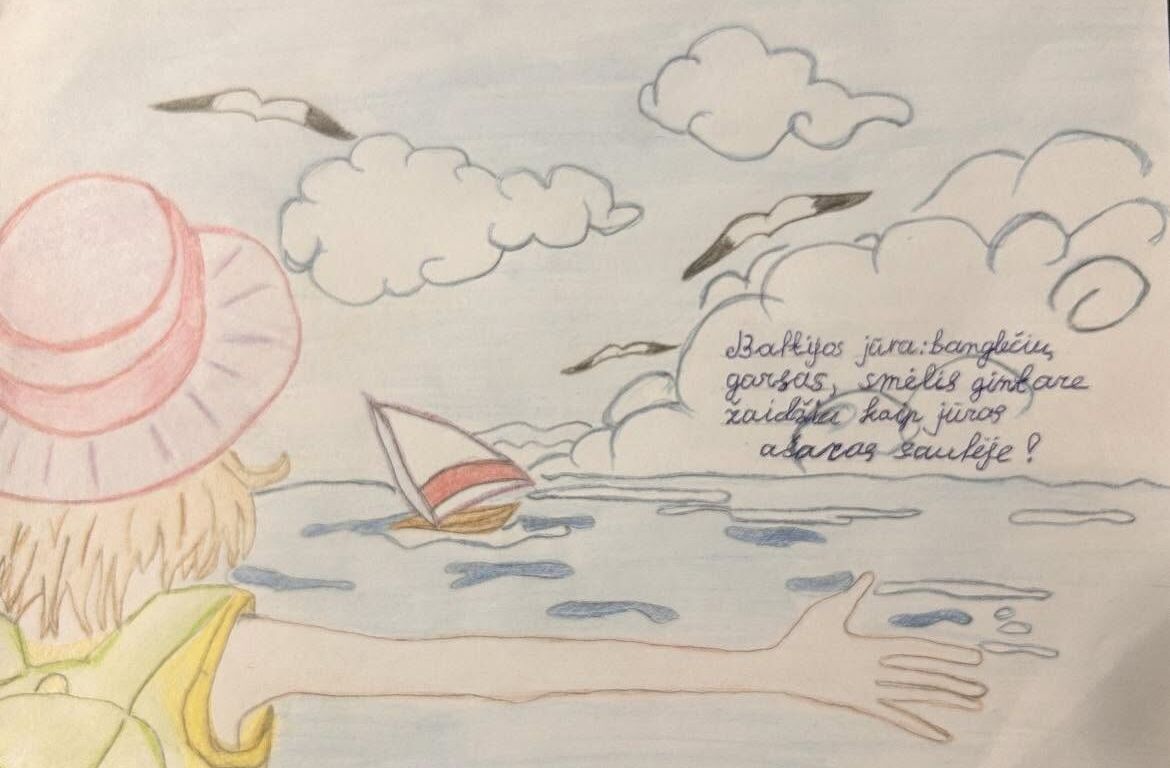 Baltijos jūra: banglečių
garsas, smėlis gintare
žaidžia kaip jūros
ašaros saulėje?